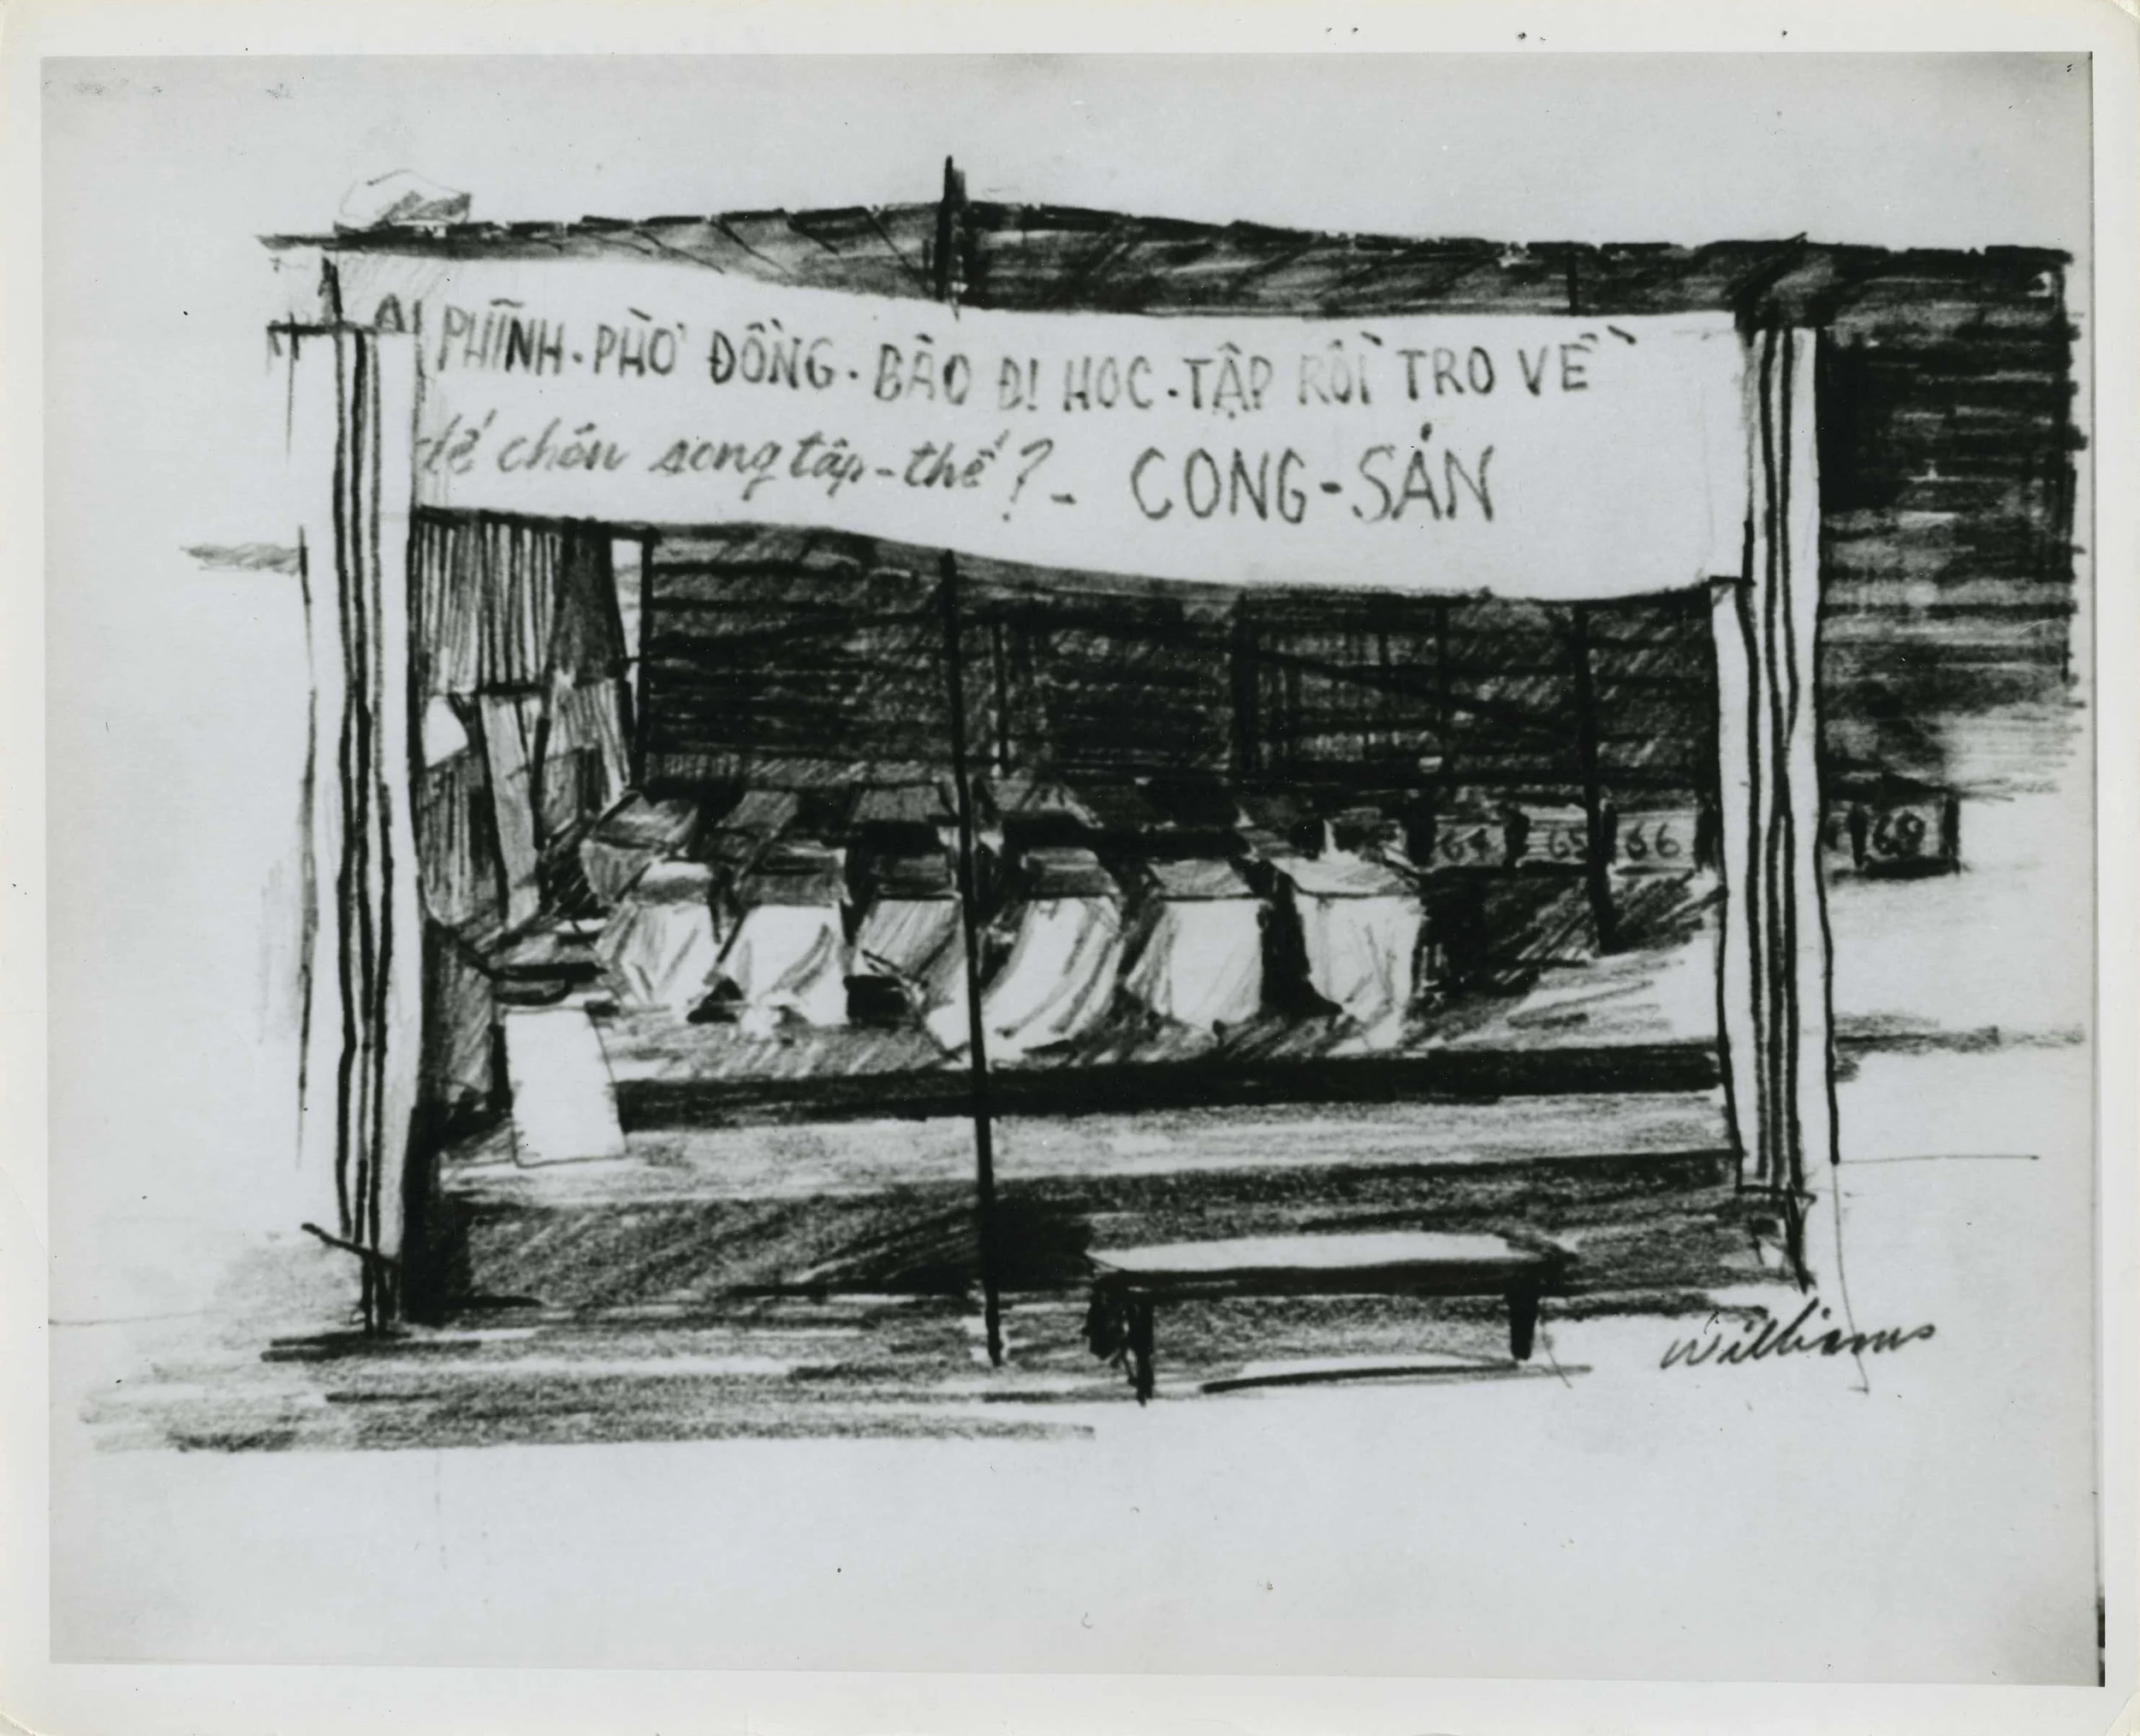 AI PHĨNH-PHỜ ĐỒNG-BÀO ĐI HOC-TẬP RỒI TRO VỀ
để chôn song tập-thể? - CONG-SẢN
64 65 66 68
Williams